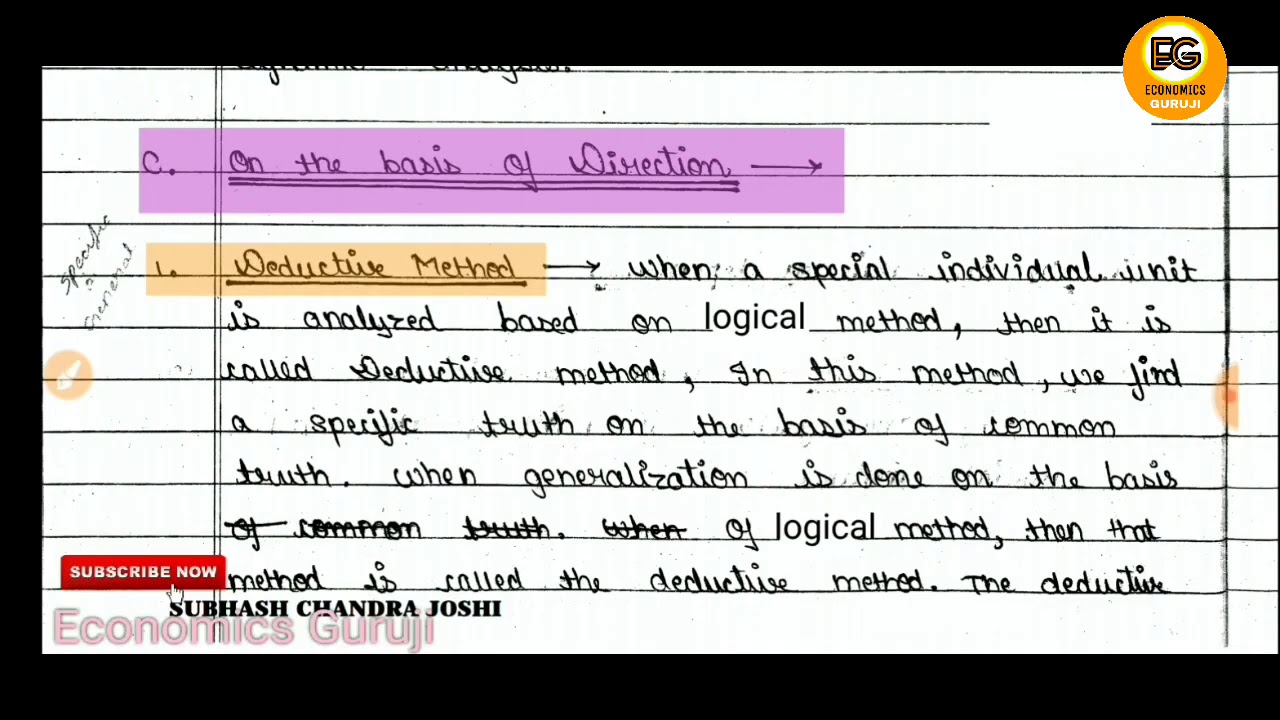 EG
ECONOMICS
GURUJI
analysis.
C. On the basis of Direction →
specific
general
1. Deductive Method → When a special individual unit
is analyzed based on logical method, then it is
called Deductive method, In this method, we find
a specific truth on the basis of common
truth. When generalization is done on the basis
of common truth. When of logical method, then that
method is called the deductive method. The deductive
SUBSCRIBE NOW
SUBHASH CHANDRA JOSHI
Economics Guruji